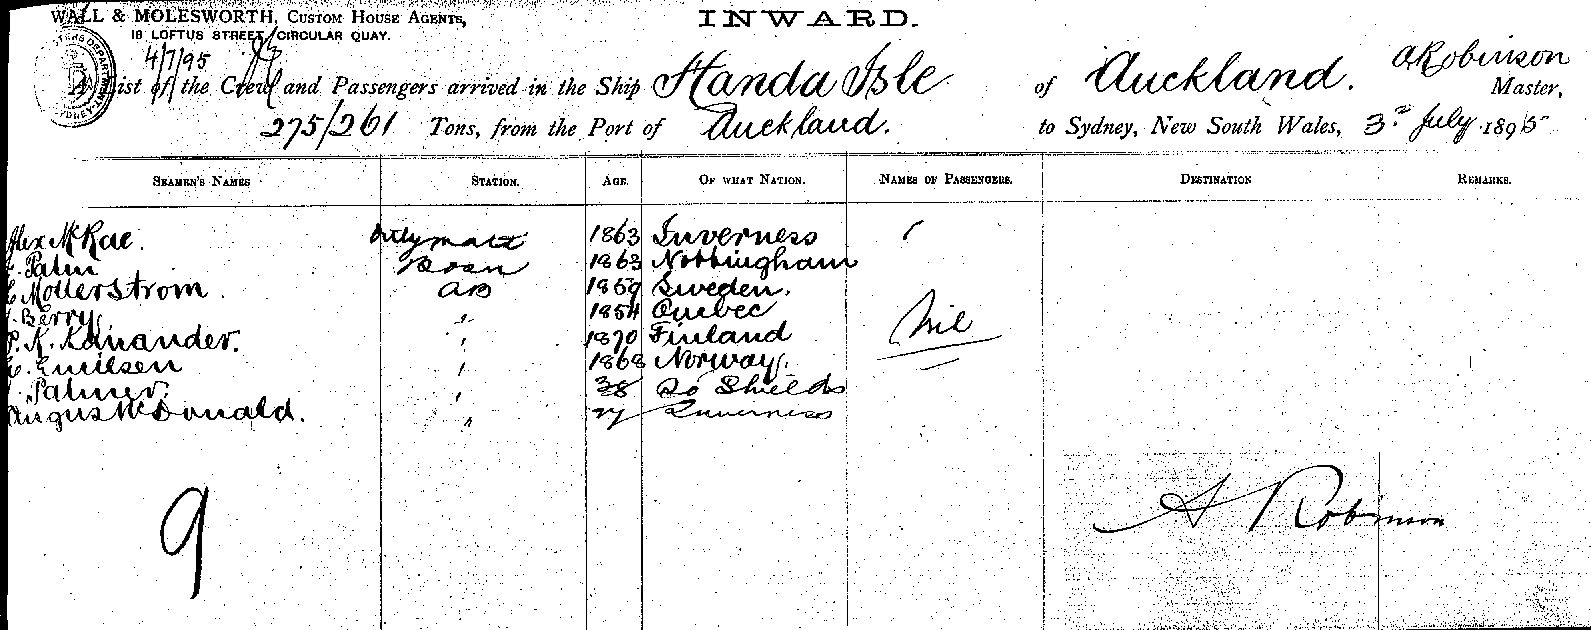 WALL & MOLESWORTH, CUSTOM HOUSE AGENTS,
18 LOFTUS STREET, CIRCULAR QUAY.
INWARD.
4/7/95
A List of the Crew and Passengers arrived in the Ship Handa Isle of Auckland. A Robinson Master,
275/261 Tons, from the Port of Auckland. to Sydney, New South Wales, 3rd July 1895
SEAMEN'S NAMES STATION. AGE. OF WHAT NATION. NAMES OF PASSENGERS. DESTINATION REMARKS.
Alex McRae. Only mate 1863 Inverness
Palm Bosn 1863 Nottingham
Mollerstrom AB 1869 Sweden.
Berry " 1854 Quebec Nil
P. K. " 1870 Finland
Emilsen " 1868 Norway.
Palmer. " 38 So Shields
Angus McDonald. " 27 Inverness
9
A Robinson